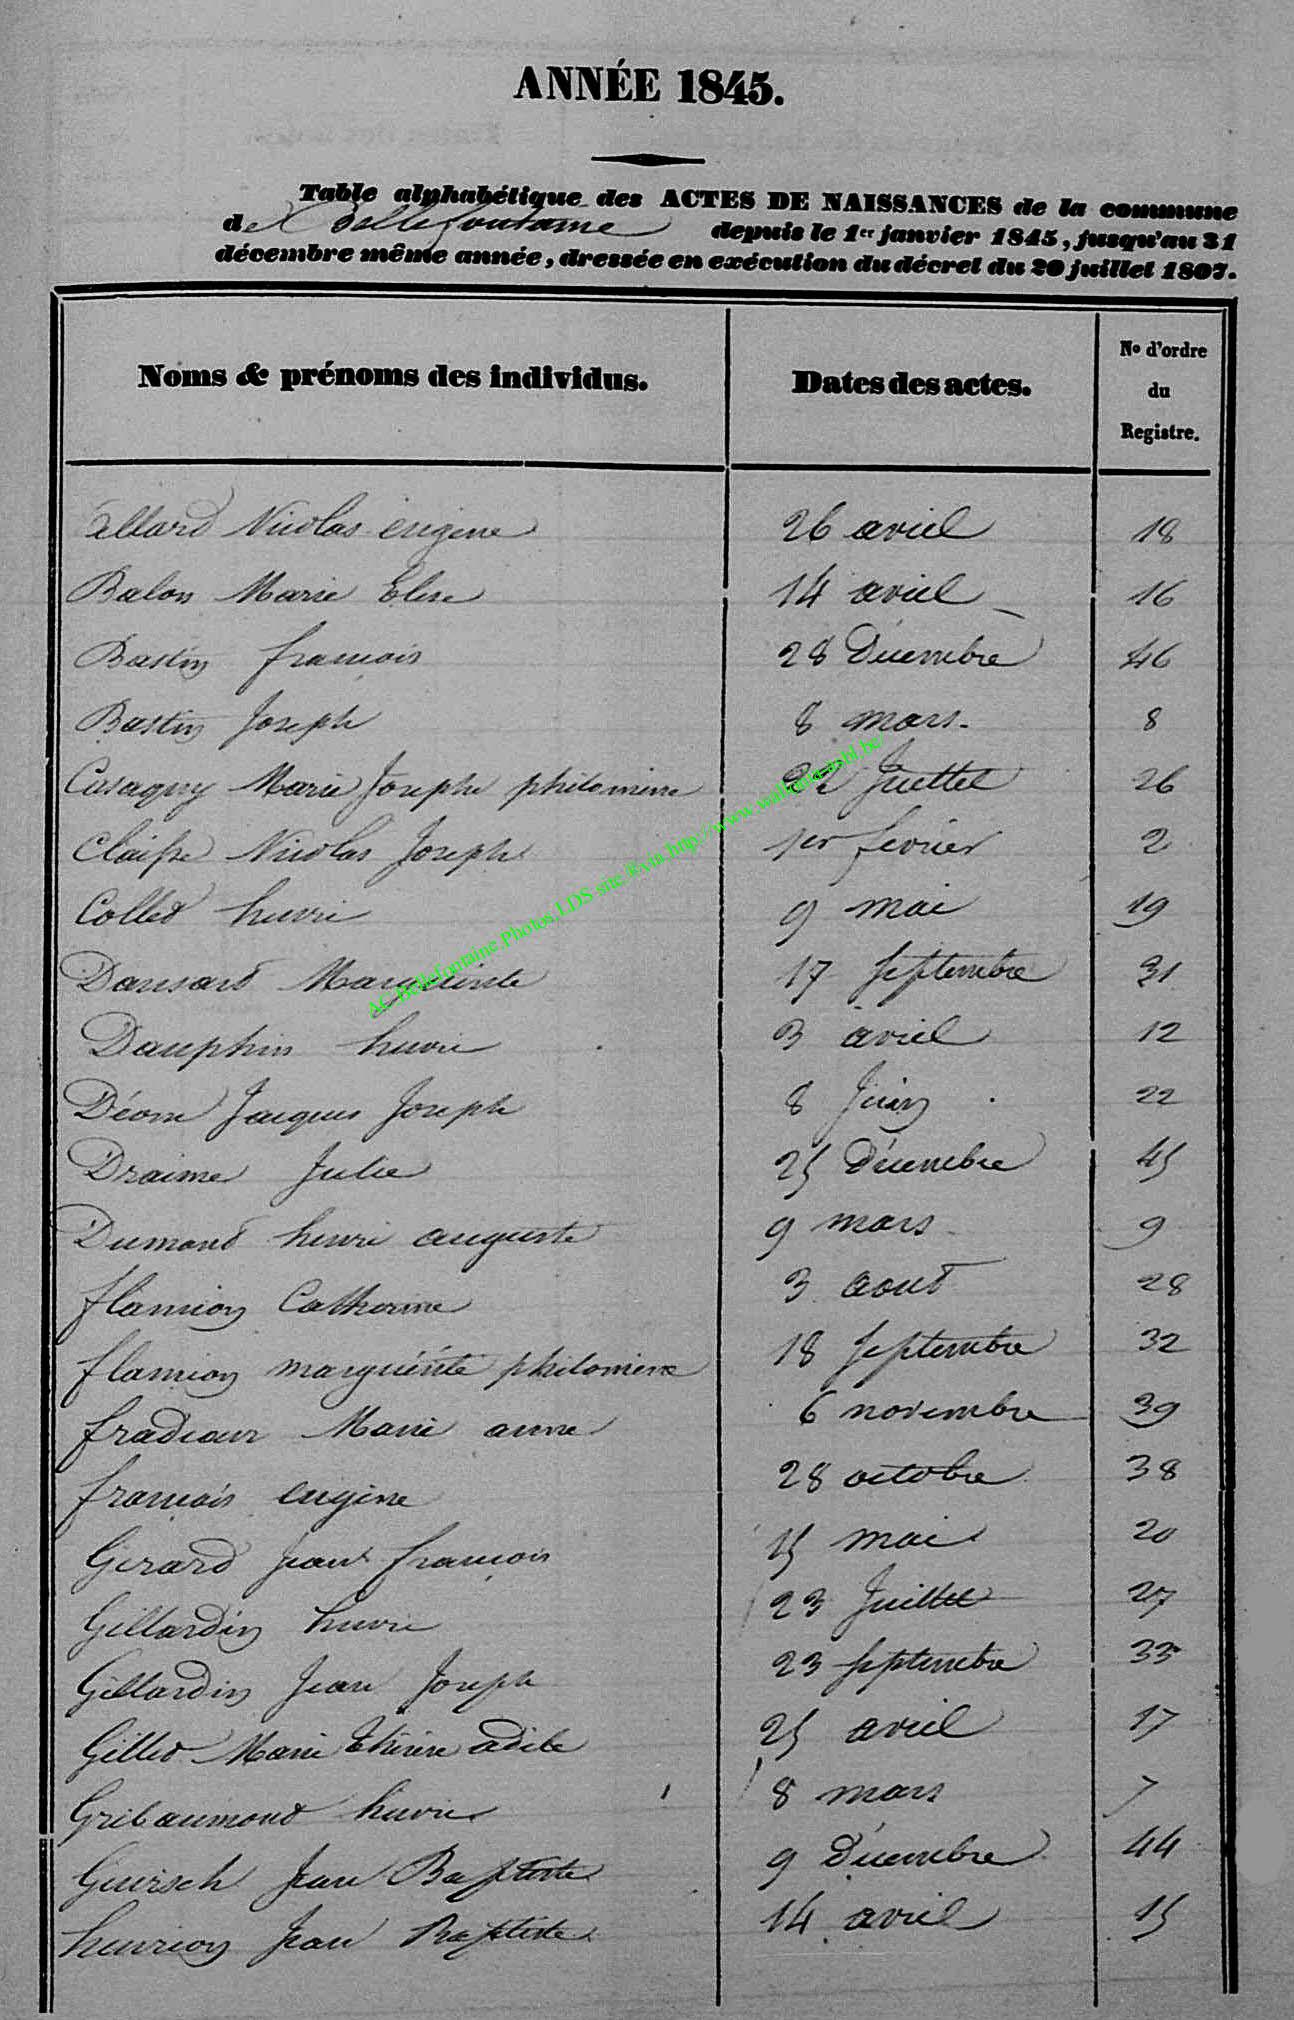 ANNÉE 1845.
Table alphabétique des ACTES DE NAISSANCES de la commune
de Bellefontaine depuis le 1er janvier 1845, jusqu'au 31
décembre même année, dressée en exécution du décret du 20 juillet 1807.
Noms & prénoms des individus. Dates des actes. No d'ordre du Registre.
Allard Nicolas eugene 26 avril 18
Balon Marie Elise 14 avril 16
Bastin francois 28 Décembre 46
Bastin Joseph 8 mars. 8
Casagny Marie Josephe philomene Juillet 26
Claisse Nicolas Joseph 1er fevrier 2
Collet henri 9 mai 19
Dansard Marguerite 17 septembre 31
Dauphin henri 3 avril 12
Déom Jacques Joseph 8 Juin 22
Draime Julie 25 décembre 45
Dumont henri auguste 9 mars 9
flamion Catherine 3 aout 28
flamion marguérite philomene 18 septembre 32
fradcour Marie anne 6 novembre 39
francois eugene 28 octobre 38
Gerard Jean francois 15 mai 20
Gillardin henri 23 Juillet 27
Gillardin Jean Joseph 23 septembre 33
Gillet Marie thérèse adile 25 avril 17
Gribaumont henri 8 mars 7
Guirsch Jean Baptiste 9 Décembre 44
henrion Jean Baptiste 14 avril 15
AC Bellefontaine,Photos,LDS site Exta,http://www.wallonia-asbl.be/